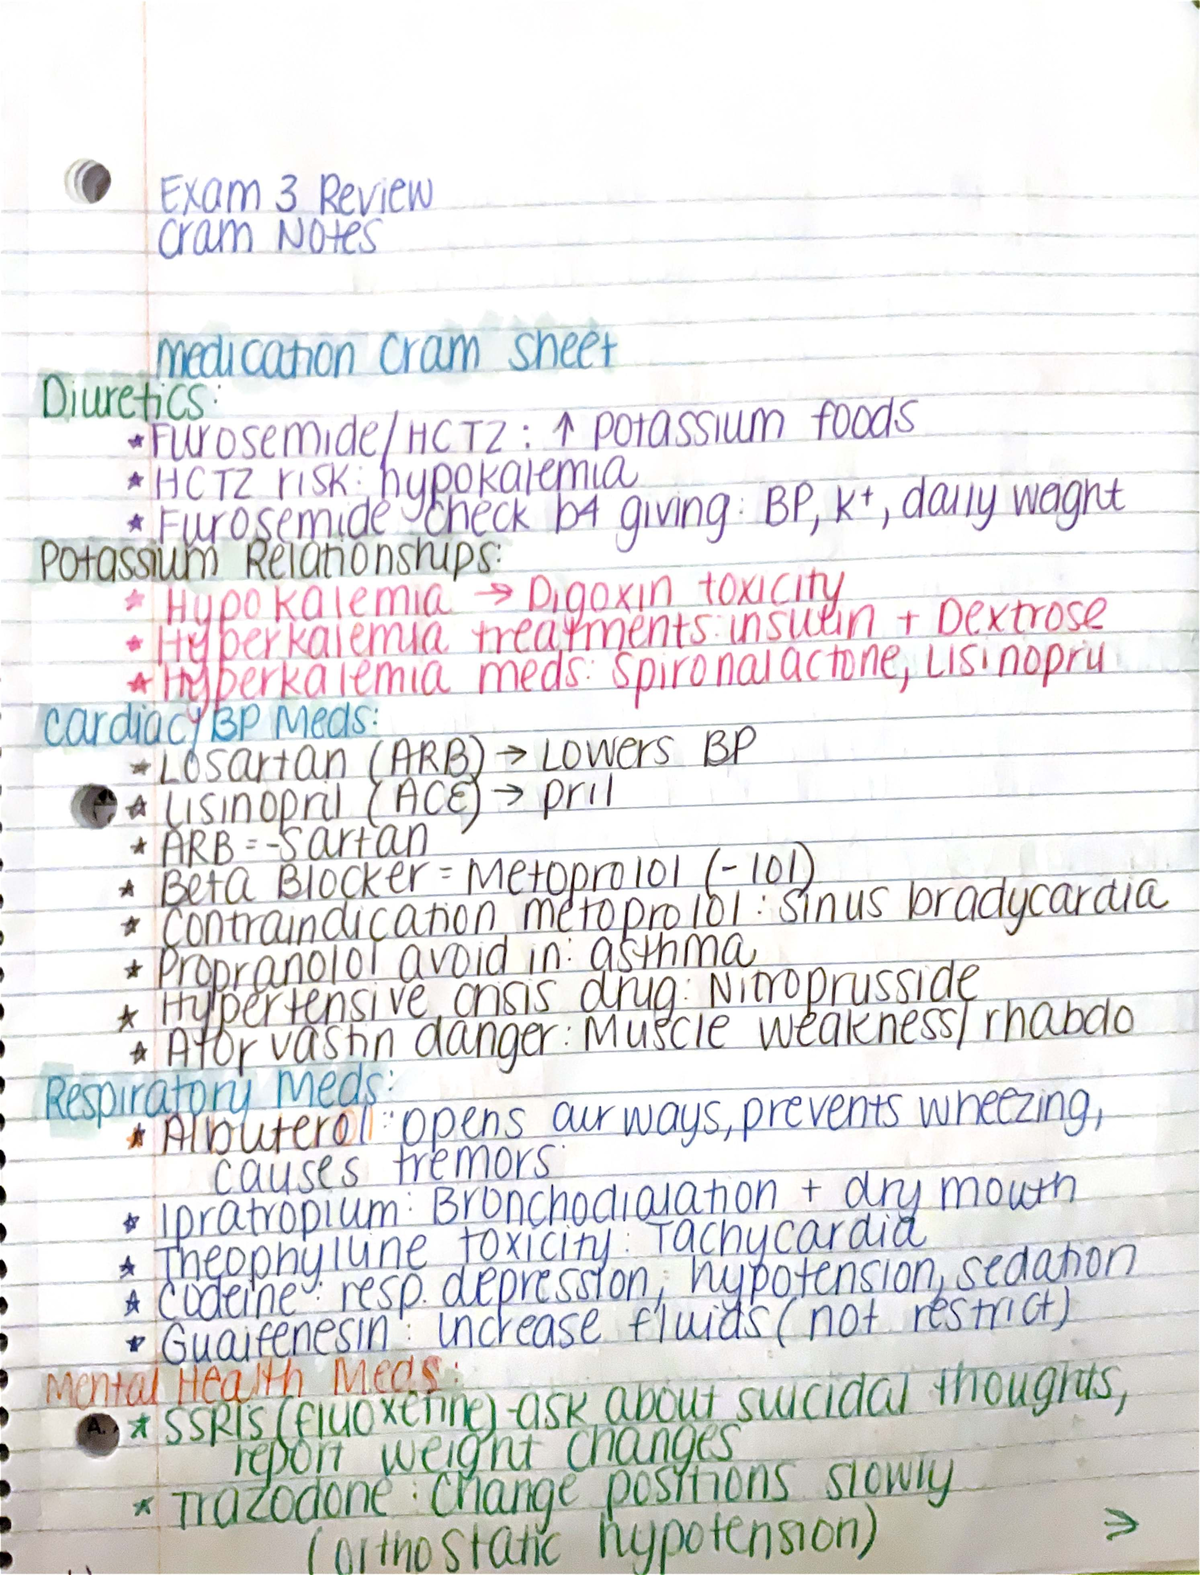 Exam 3 Review
Cram Notes
Medication Cram Sheet
Diuretics:
★ Furosemide/HCTZ: ↑ potassium foods
★ HCTZ risk: hypokalemia
★ Furosemide check b4 giving: BP, K+, daily weight
Potassium Relationships:
★ Hypokalemia → Digoxin toxicity
★ Hyperkalemia treatments: insulin + Dextrose
★ Hyperkalemia meds: spironalactone, Lisinopril
Cardiac/BP Meds:
★ Losartan (ARB) → Lowers BP
★ Lisinopril (ACE) → pril
★ ARB = -Sartan
★ Beta Blocker = Metoprolol (-lol)
★ Contraindication metoprolol: sinus bradycardia
★ Propranolol avoid in: asthma
★ Hypertensive crisis drug: Nitroprusside
★ Atorvastin danger: Muscle weakness/rhabdo
Respiratory Meds:
★ Albuterol: opens airways, prevents wheezing,
causes tremors
★ Ipratropium: Bronchodialation + dry mouth
★ Theophylline toxicity: Tachycardia
★ Codeine: resp. depression, hypotension, sedation
★ Guaifenesin: increase fluids (not restrict)
Mental Health Meds:
★ SSRIs (fluoxetine)-ask about suicidal thoughts,
report weight changes
★ Trazodone: change positions slowly
(orthostatic hypotension)
→